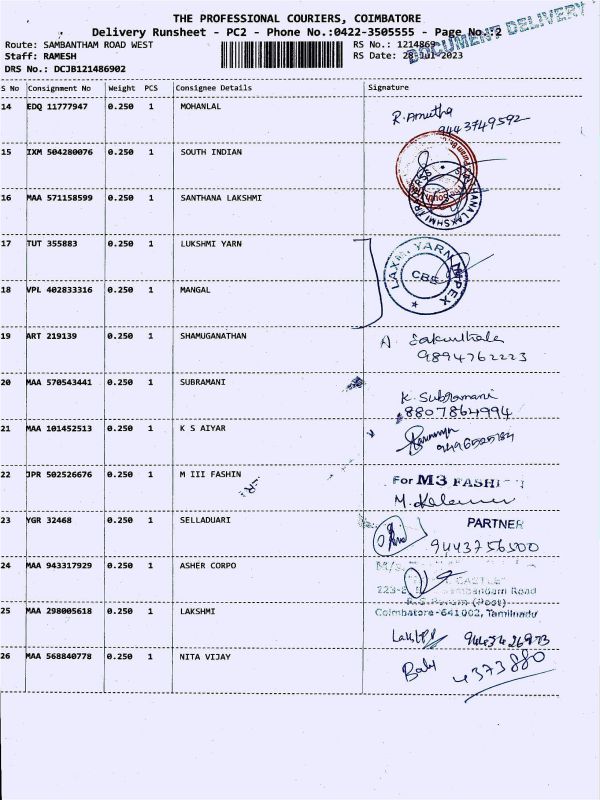 THE PROFESSIONAL COURIERS, COIMBATORE
Delivery Runsheet - PC2 - Phone No.:0422-3505555 - Page No.:2
DOCUMENT DELIVERY
Route: SAMBANTHAM ROAD WEST RS No.: 1214869
Staff: RAMESH RS Date: 28-Jul-2023
DRS No.: DCJB121486902
S No Consignment No Weight PCS Consignee Details Signature
14 EDQ 11777947 0.250 1 MOHANLAL R. Amutha
9443749592
15 IXM 504280076 0.250 1 SOUTH INDIAN
16 MAA 571158599 0.250 1 SANTHANA LAKSHMI
17 TUT 355883 0.250 1 LUKSHMI YARN LAXMI YARN IMPEX
CBE
18 VPL 402833316 0.250 1 MANGAL
19 ART 219139 0.250 1 SHAMUGANATHAN A. Sakunthala
9894762223
20 MAA 570543441 0.250 1 SUBRAMANI K. Subramani
8807864994
21 MAA 101452513 0.250 1 K S AIYAR
22 JPR 502526676 0.250 1 M III FASHIN For M3 FASHI
23 YGR 32468 0.250 1 SELLADUARI PARTNER
9443756500
24 MAA 943317929 0.250 1 ASHER CORPO M/s.
CASTLE
Road
25 MAA 298005618 0.250 1 LAKSHMI Coimbatore-641002, Tamilnadu
26 MAA 568840778 0.250 1 NITA VIJAY